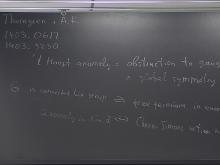 Thorngren, A.K.
1403.0617
1403.9230
't Hooft anomaly = obstruction to gaug
a global symmetry
G is connected Lie group ⇒ free fermions in even
2 anomaly in dim d ↔ Chern-Simons action in